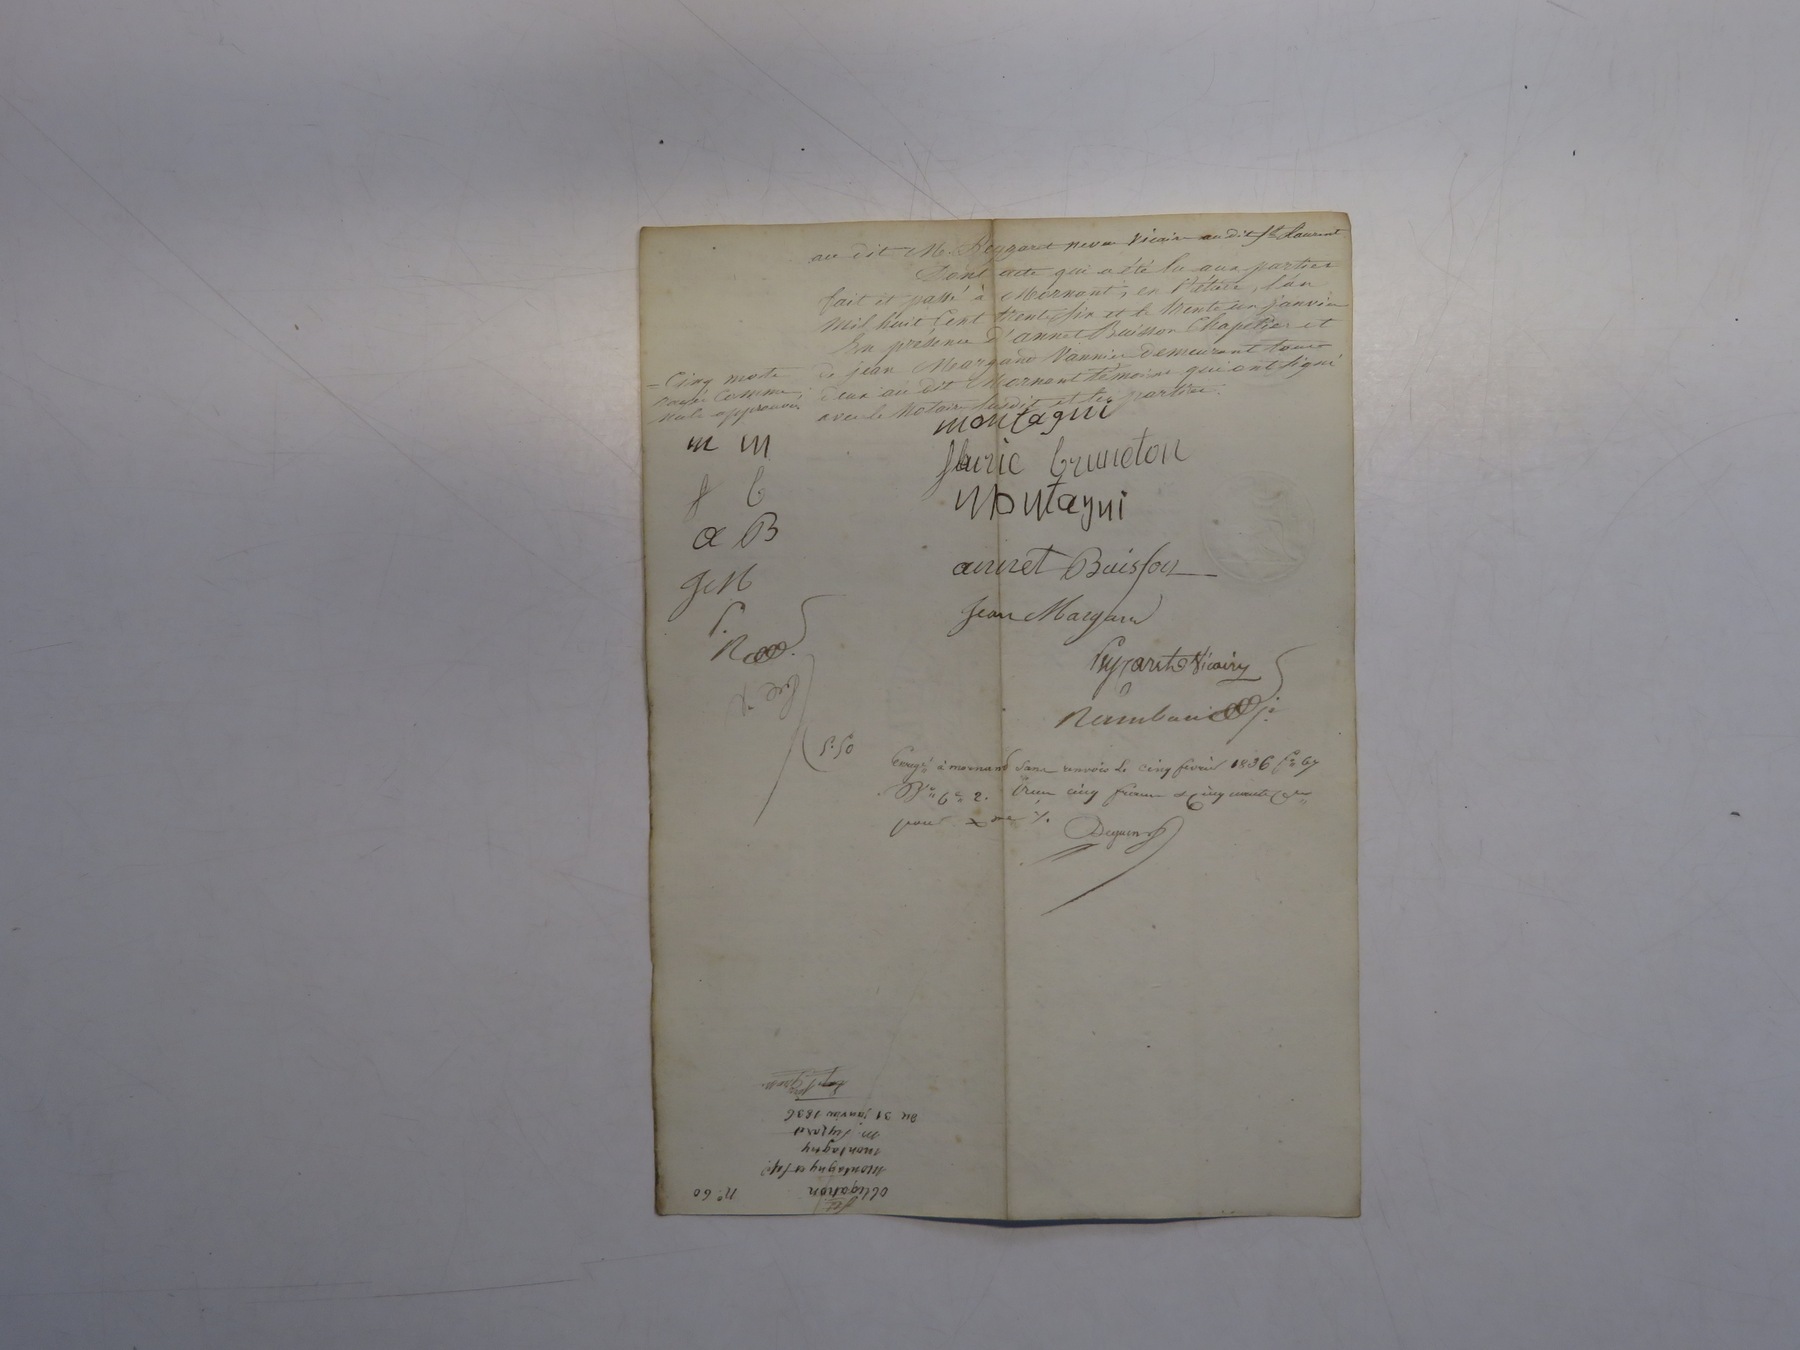 au dit M. Peyzaret neveu Vicaire au dit St Laurent.
Dont acte qui a été lu aux parties
fait et passé à Mornant, en l'étude, l'an
mil huit cent trente six et le trente un janvier
En présence d'annet Buisson Chapelier et
de jean Margand Vannier demeurant tous
deux au dit Mornant témoins qui ont signé
avec le Notaire susdit et les parties.
= Cinq mots
rayés comme
nuls approuvés
m m
f b
a B
J M
P.
R
montagni
fleurie bruneton
Montagni
annet Buisson
Jean Margand
Vicaire
5.50
Enregé à mornant sans renvois le cinq février 1836 fo 67
Vo Ce 2. Reçu cinq francs & cinquante Cen
pour Xme /.
nº 60
obligation
Montagny et
montagny
M.
du 31 janvier 1836